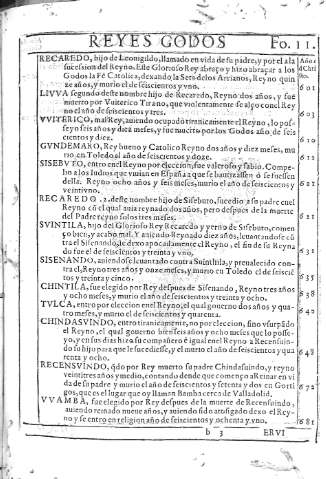 REYES GODOS Fo. 11.
Años d Christo.
RECAREDO, hijo de Leonigildo, llamado en vida de su padre, y por el a la
sucession del Reyno. Este Glorioso Rey abraço y hizo abraçar a los
Godos la Fè Catolica, dexando la Seta de los Arrianos, Reyno quin
ze años, y murio el de seiscientos y vno. 601
LIVVA segundo deste nombre hijo de Recaredo, Reyno dos años, y fue
muerto por Vuiterico Tirano, que violentamente se alço con el Rey
no el año de seiscientos y tres. 603
VVITERICO, mal Rey, auiendo ocupado tiranicamente el Reyno, lo pos-
seyo seis años y diez meses, y fue muerto por los Godos año, de seis
cientos y diez. 610
GVNDEMARO, Rey bueno y Catolico Reyno dos años y diez meses, mu
rio en Toledo al año de seiscientos y doze. 612
SISEBVTO, entro en el Reyno por eleccion, fue valeroso y sabio. Compe-
lio a los Iudios que viuian en España a que se bautizassen ò se fuessen
della. Reyno ocho años y seis meses, murio el año de seiscientos y
veintivno. 621
RECAREDO. 2. deste nombre hijo de Sisebuto, sucedio a su padre en el
Reyno cõ el qual auia reynado dos años, pero despues de la muerte
del Padre reyno solos tres meses. 621
SVINTILA, hijo del Glorioso Rey Recaredo y yerno de Sisebuto, comen
ço bien, y acabo mal. Y auiendo Reynado diez años, leuantandose cõ
tra el Sisenando, le dexo apocadamente el Reyno, el fin de su Reyna
do fue el de seiscientos y treinta y vno. 631
SISENANDO, auiendose leuantado contra Suintila, y preualecido con-
tra el, Reyno tres años y onze meses, y murio en Toledo el de seiscie
tos y treinta y cinco. 635
CHINTILA, fue elegido por Rey despues de Sisenando, Reyno tres años
y ocho meses, y murio el año de seiscientos y treinta y ocho. 638
TVLCA, entro por eleccion en el Reyno, el qual gouerno dos años y qua-
tro meses, y murio el de seiscientos y quarenta. 642
CHINDASVINDO, entro tiranicamente, por eleccion, sino vsurpãdo
el Reyno, el qual gouerno seis años y ocho meses que lo posse-
yo, y en sus dias hizo su compañero è igual en el Reyno a Recensuin-
do su hijo para que le sucediesse, y el murio año de seiscientos y qua
renta y ocho. 648
RECENSVINDO, qdo por Rey muerto su padre Chindasuindo, y reyno
veintitres años y medio, contando desde que començo a Reinar en vi
da de su padre y murio el año de seiscientos y setenta y dos en Gorti
gos, que es el lugar que oy llaman Bamba cerca de Valladolid. 672
VVAMBA, fue elegido por Rey despues de la muerte de Recensuindo,
auiendo reinado nueue años, y auiendo sido atosigado dexo el Rey-
no y se entro en religion año de seiscientos y ochenta y vno. 681
b 3 ERVI